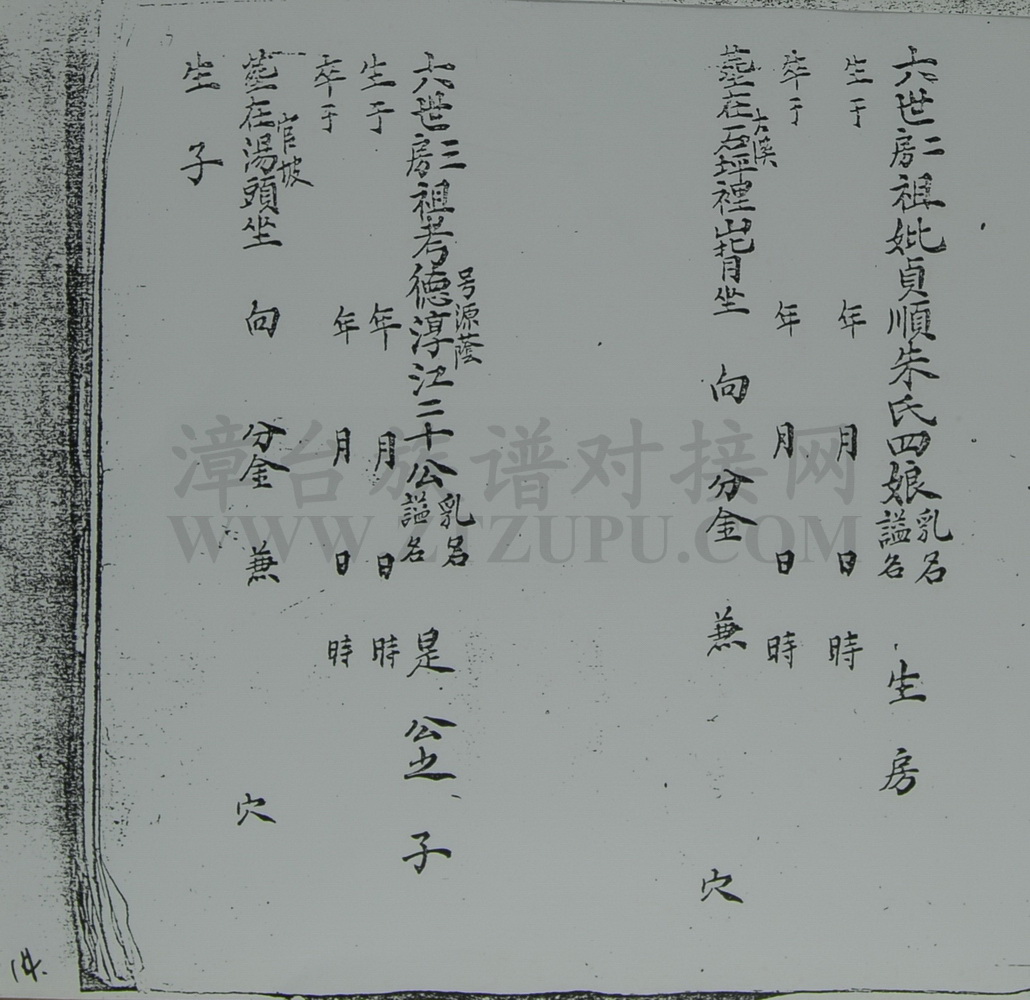 六世二房祖妣貞順朱氏四娘乳名諡名 生 房
生于 年 月 日 時
卒于 年 月 日 時
塟在大溪石坪裡山背坐 向 分金 兼 穴
六世三房祖考德淳江二十公号源蔭乳名諡名 是 公之 子
生于 年 月 日 時
卒于 年 月 日 時
塟在官坡湯頭坐 向 分金 兼 穴
生 子
14.
漳台族谱对接网
WWW.ZTZUPU.COM